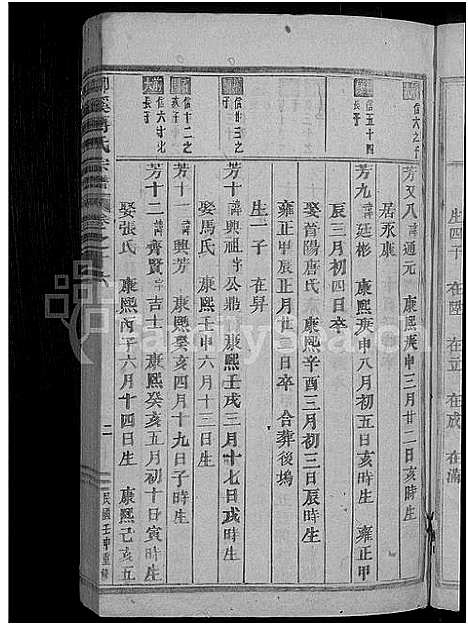 生四子 在陞 在立 在成 在滿
信六之子
芳又八諱通元 康熙庚申三月廿二日亥時生
居永康
信五十四
長子
芳九諱廷彬 康熙庚申八月初五日亥時生 雍正甲
辰三月初四日卒
娶首陽唐氏 康熙辛酉三月初三日辰時生
雍正甲辰正月廿日卒 合葬後塢
生一子 在昇
信廿三之
子
芳十諱興祖字公鼎 康熙壬戌三月十七日戌時生
娶馬氏 康熙壬申六月十二日生
信十二之
亥子
芳十一諱興芳 康熙癸亥四月十九日子時生
信六十比
長子
芳十二諱齊賢字吉士 康熙癸亥五月初十日寅時生
娶張氏 康熙丙子六月十四日生 康熙己亥五
柳溪傅氏宗譜 卷之十六
二
民國壬申重修
FamilySearch